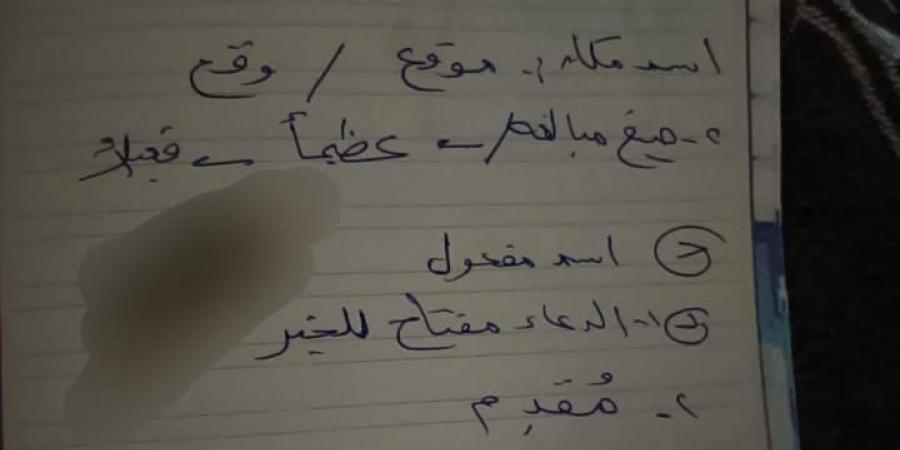 اسم مكان: موقع / وقع
٢- صيغ مبالغة ← عظيماً ← فعيلاً
ج اسم مفعول
د ١- الدعاء مفتاح للخير
٢- مُقدِم